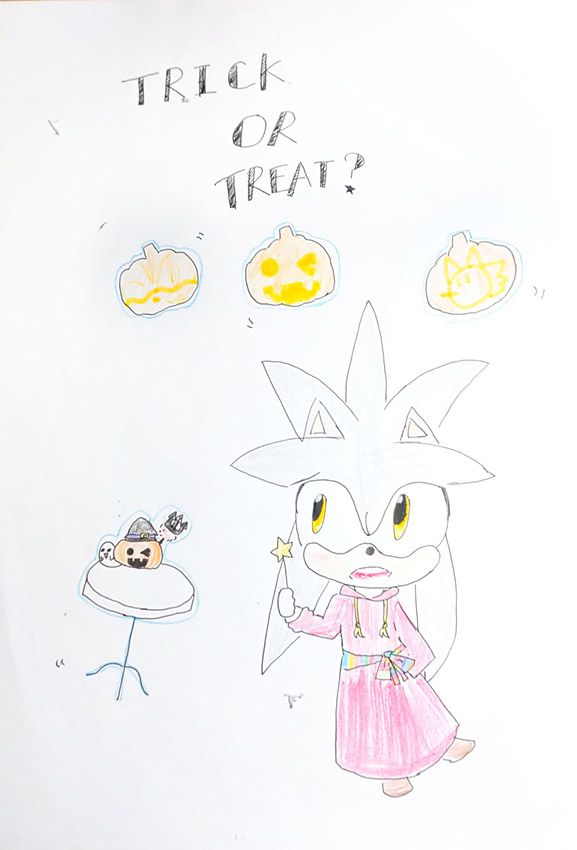 TRICK
OR
TREAT?